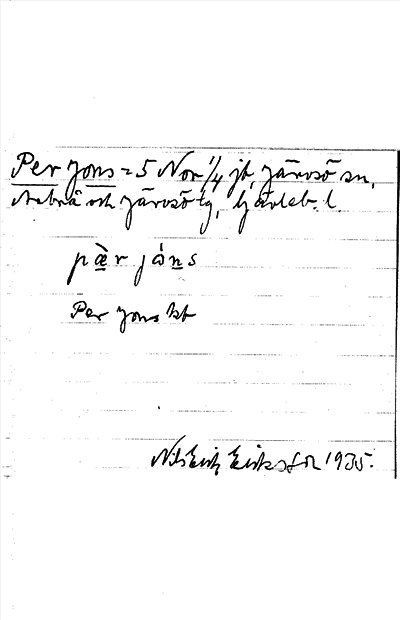 Per Jons = 5 Nor 1/4 jb, Järvsö sn,
Arbrå och Järvsö tg, Gävleb. l.
pæ̀r jȧ̀ns
Per Jons kt
Nils Erik Eriksson 1935.